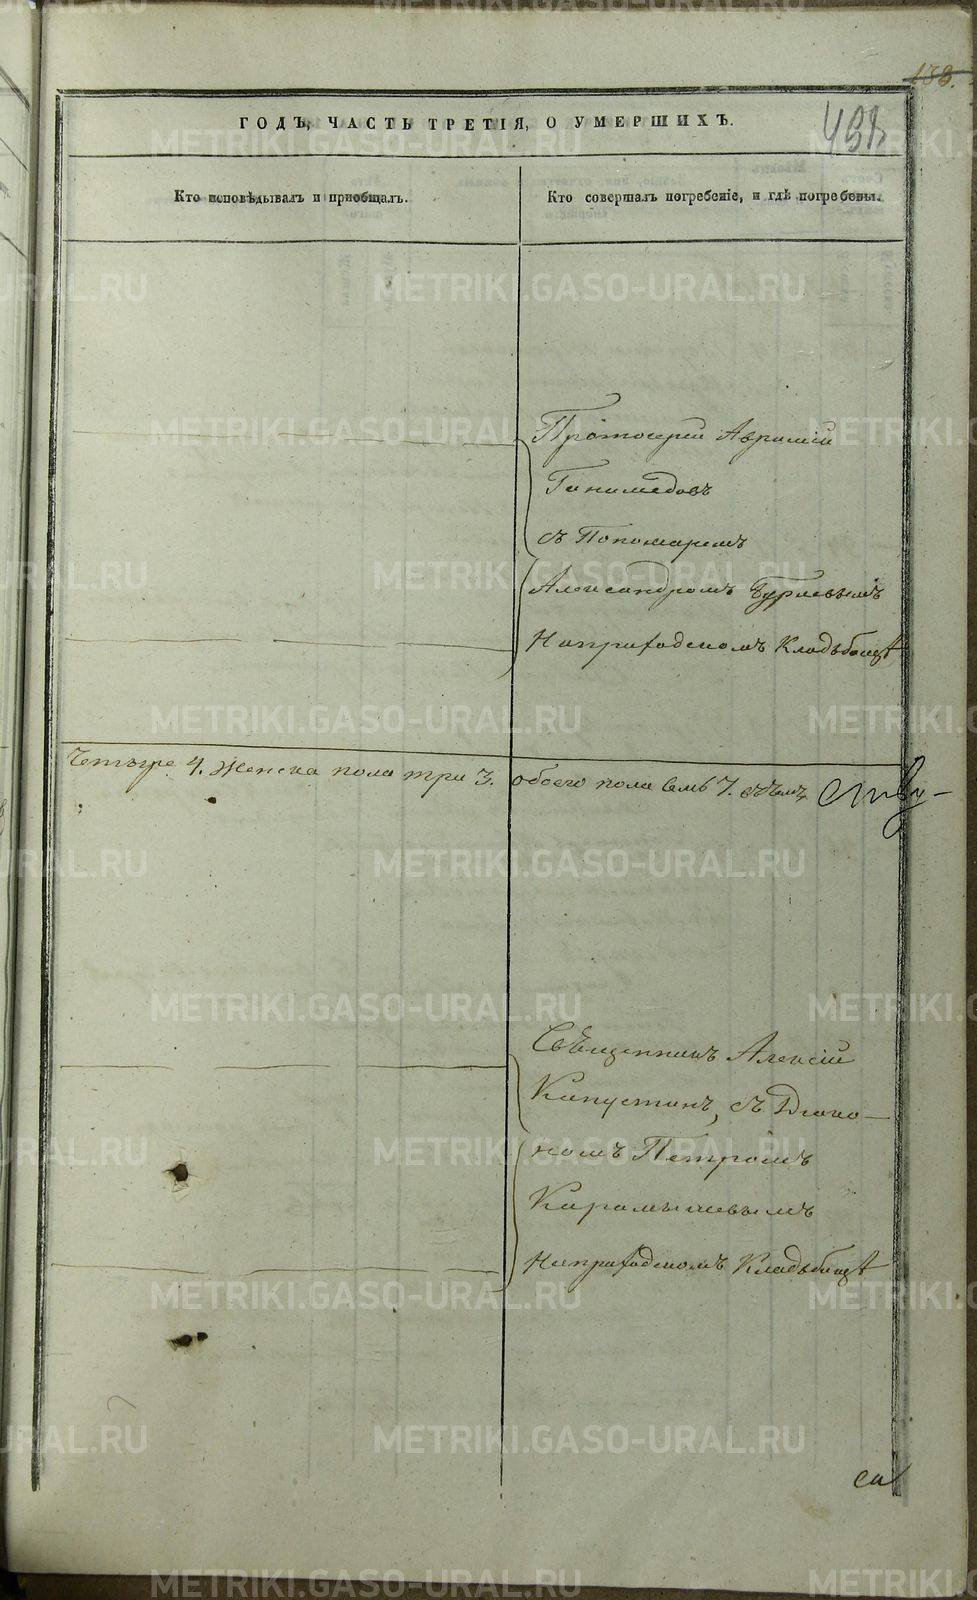 138.
ГОДЪ, ЧАСТЬ ТРЕТІЯ, О УМЕРШИХЪ.
Кто исповѣдывалъ и пріобщалъ.
Кто совершалъ погребеніе, и гдѣ погребены.
Протоіерей Аврамій
Ганимедовъ
съ Пономаремъ
Александромъ
На приходскомъ Кладьбищѣ
Четыре 4. Женска пола три 3. обоего пола семь 7.
Священникъ Алексій
Капустинъ, съ Діако-
номъ Петромъ
Карамышевымъ
На приходскомъ Кладьбищѣ
METRIKI.GASO-URAL.RU